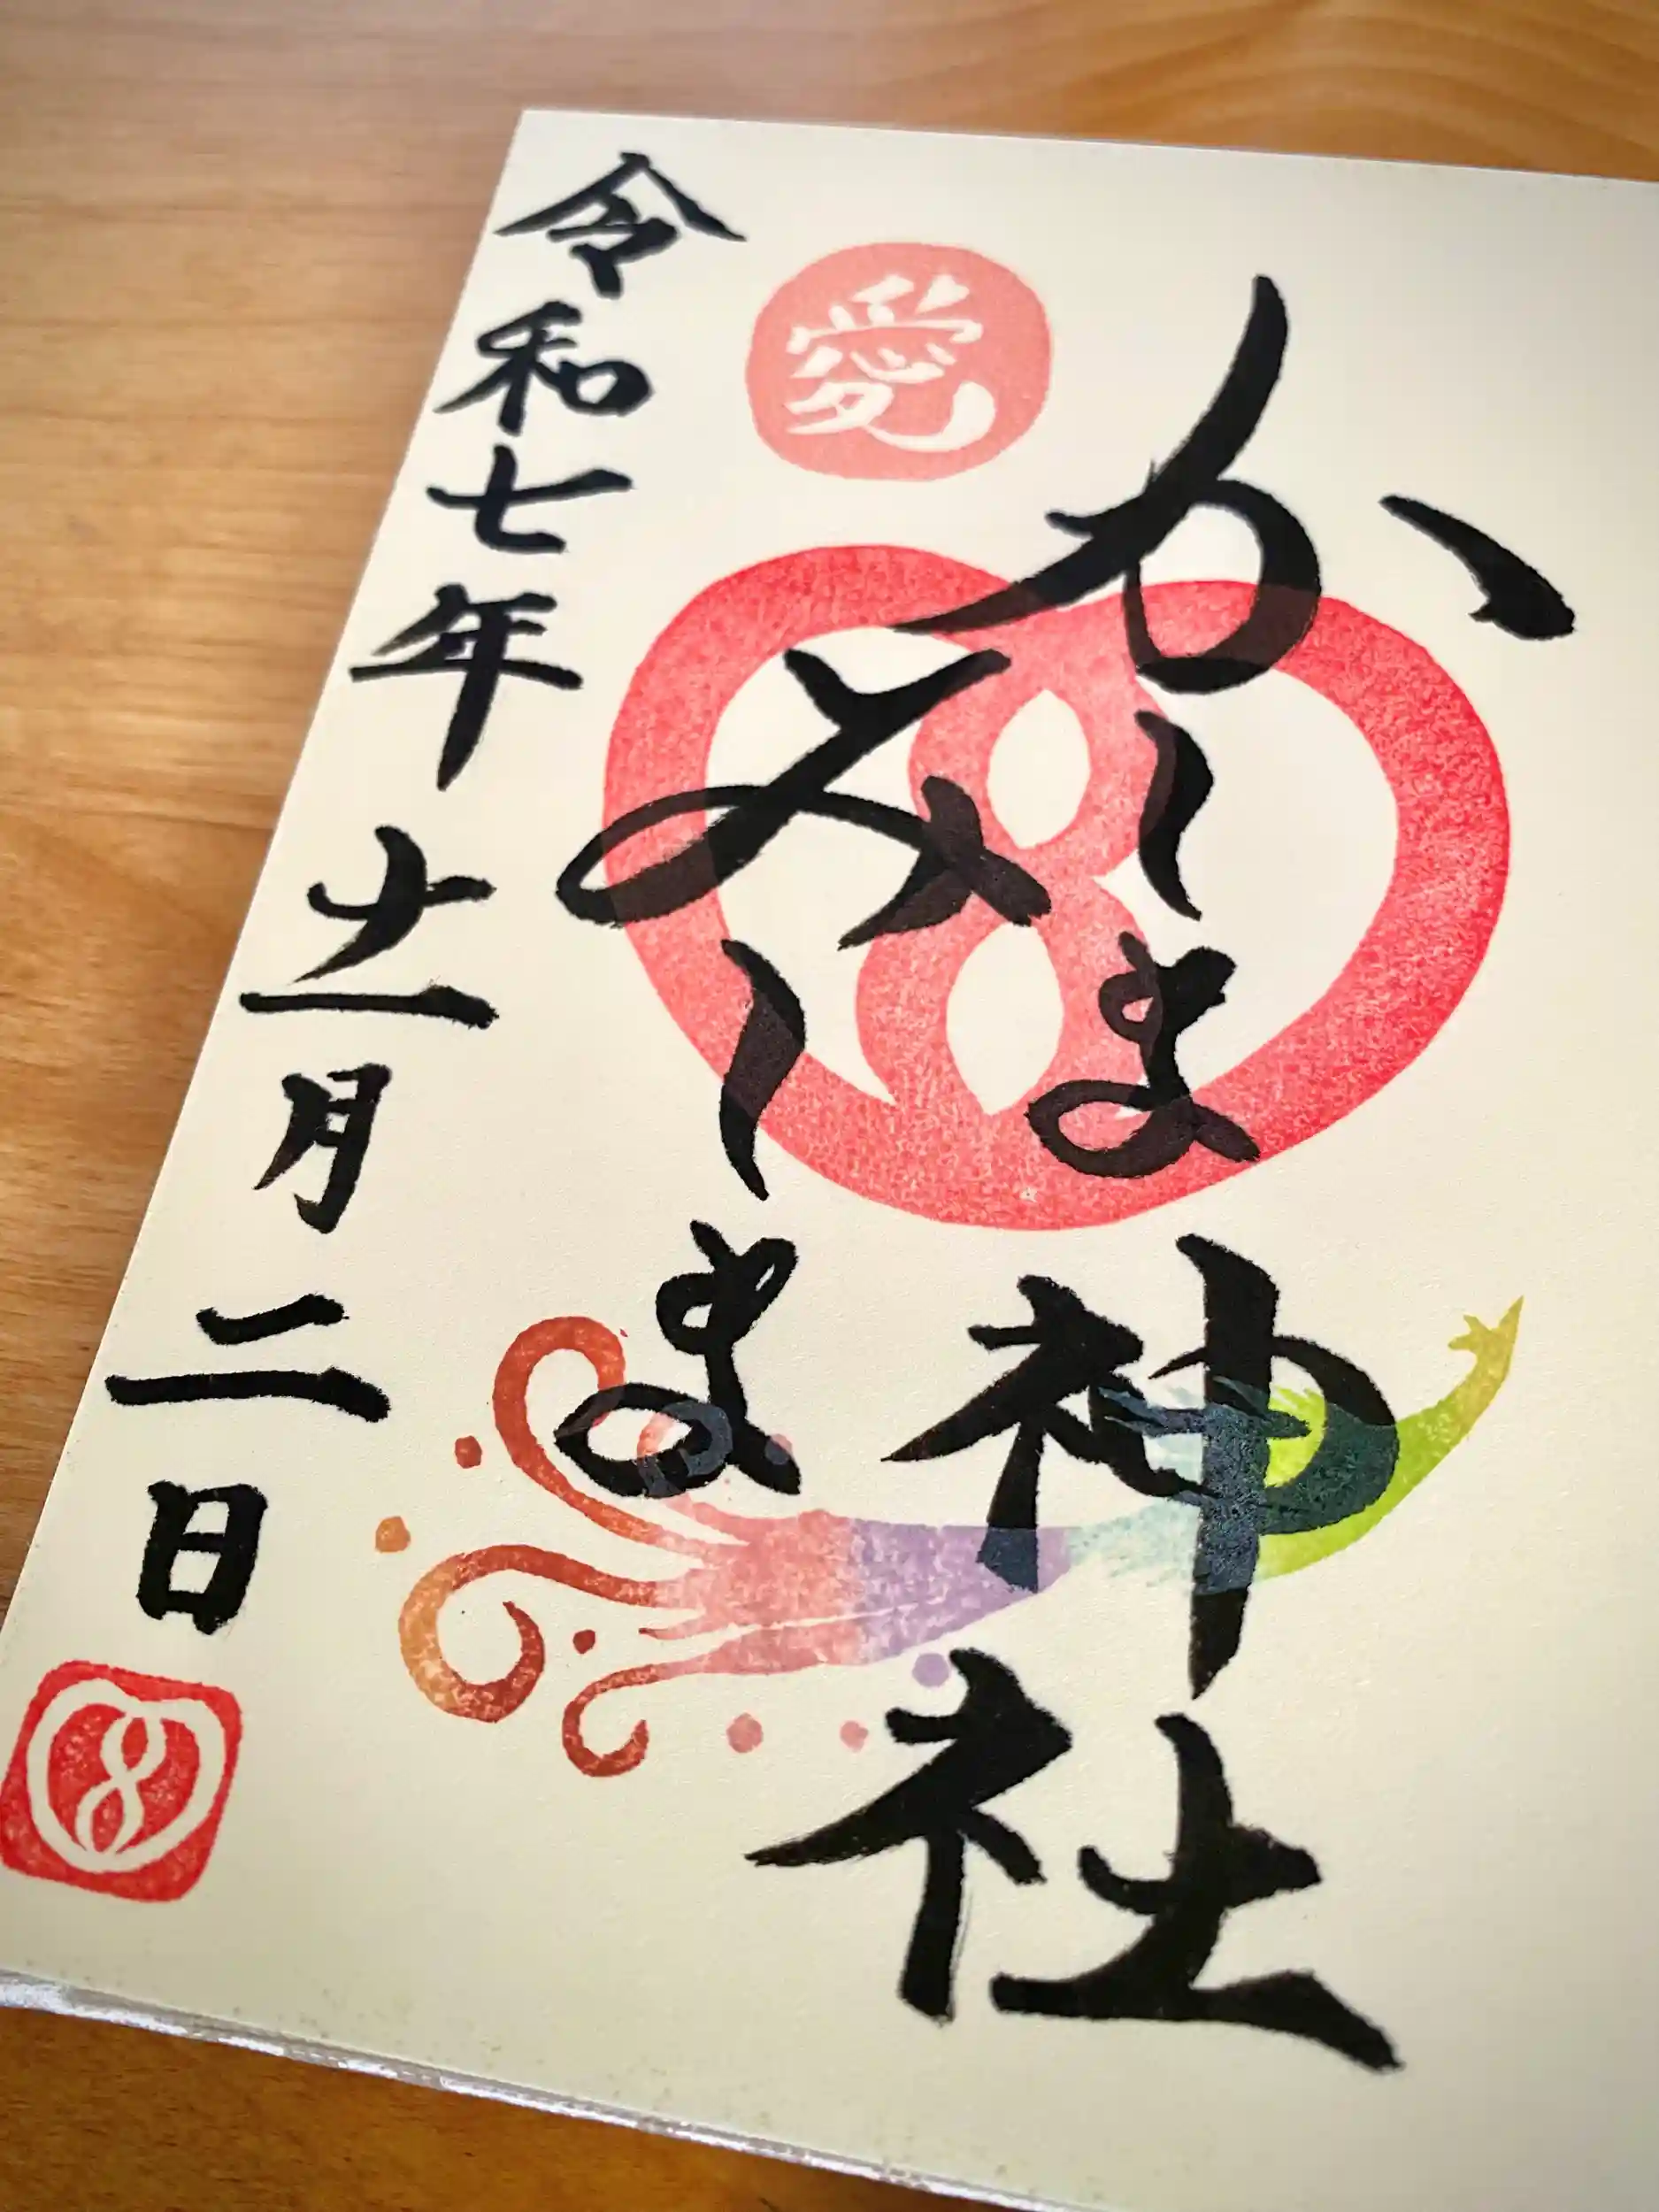 かーま神社
愛
みーま
令和七年十一月二日